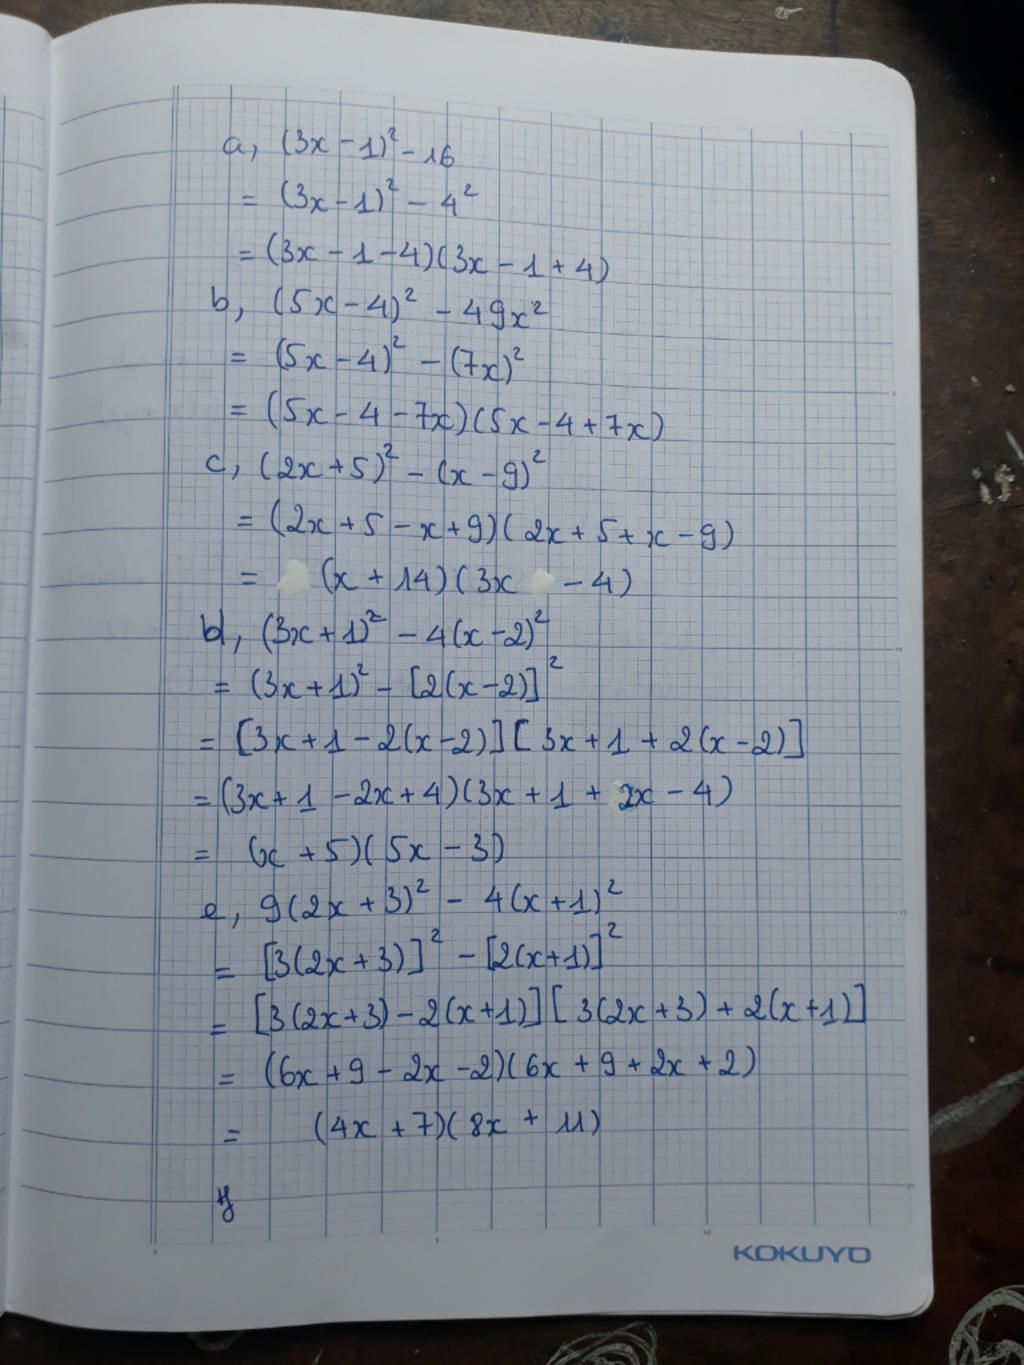 a, (3x - 1)² - 16
= (3x - 1)² - 4²
= (3x - 1 - 4)(3x - 1 + 4)
b, (5x - 4)² - 49x²
= (5x - 4)² - (7x)²
= (5x - 4 - 7x)(5x - 4 + 7x)
c, (2x + 5)² - (x - 9)²
= (2x + 5 - x + 9)(2x + 5 + x - 9)
= (x + 14)(3x - 4)
d, (3x + 1)² - 4(x - 2)²
= (3x + 1)² - [2(x - 2)]²
= [3x + 1 - 2(x - 2)][3x + 1 + 2(x - 2)]
= (3x + 1 - 2x + 4)(3x + 1 + 2x - 4)
= (x + 5)(5x - 3)
e, 9(2x + 3)² - 4(x + 1)²
= [3(2x + 3)]² - [2(x + 1)]²
= [3(2x + 3) - 2(x + 1)][3(2x + 3) + 2(x + 1)]
= (6x + 9 - 2x - 2)(6x + 9 + 2x + 2)
= (4x + 7)(8x + 11)
KOKUYO